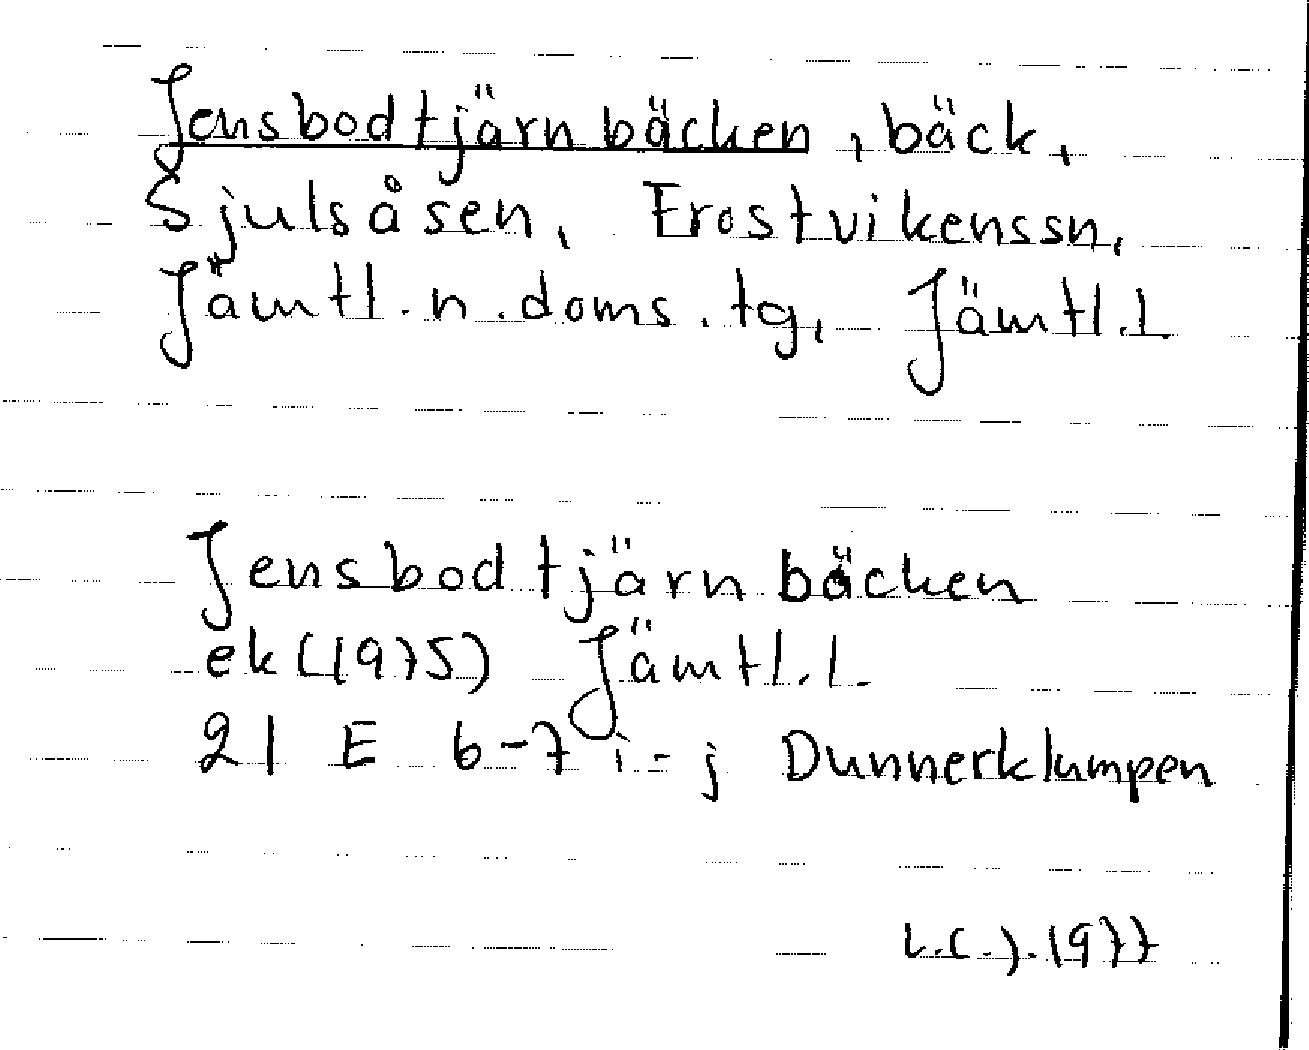 Jensbodtjärnbäcken, bäck,
Sjulsåsen, Frostvikenssn,
Jämtl.n.doms.tg, Jämtl.l
Jensbodtjärnbäcken
ek (1975) Jämtl.l.
21 E 6-7 i-j Dunnerklumpen
L.C.J. 1977